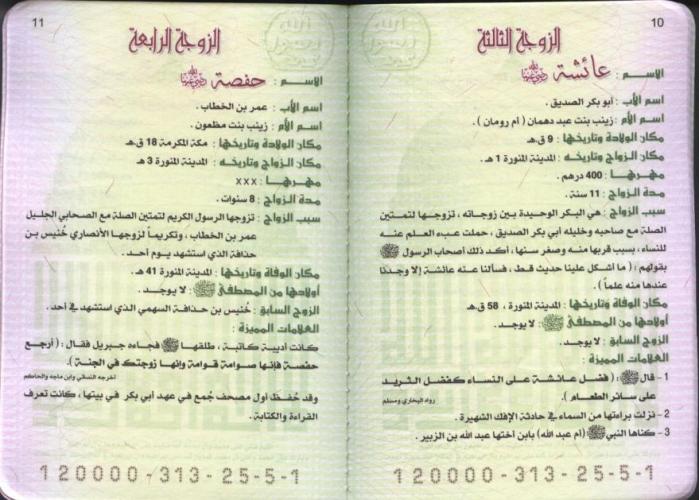 10
الزوجة الثالثة
الاســم : عائشة رضي الله عنها
اسم الأب : أبو بكر الصديق .
اسم الأم : زينب بنت عبد دهمان ( ام رومان ) .
مكان الولادة وتاريخها : 9 ق.هـ
مكان الزواج وتاريخه : المدينة المنورة 1 هـ .
مهرها : 400 درهم .
مدة الزواج : 11 سنة .
سبب الزواج : هي البكر الوحيدة بين زوجاته ، تزوجها لتمتين
الصلة مع صاحبه وخليله أبي بكر الصديق ، حملت عبء العلم عنه
للنساء، بسبب قربها منه وصغر سنها، أكد ذلك أصحاب الرسول ﷺ
بقولهم : ( ما أشكل علينا حديث قط ، فسألنا عنه عائشة إلا وجدنا
عندها منه علماً ) .
مكان الوفاة وتاريخها : المدينة المنورة ، 58 ق.هـ
أولادها من المصطفى ﷺ : لا يوجد .
الزوج السابق : لا يوجد .
العلامات المميزة :
1 - قال ﷺ : ( فضل عائشة على النساء كفضل الثريد
على سائر الطعام ) . رواه البخاري ومسلم
2 - نزلت براءتها من السماء في حادثة الإفك الشهيرة .
3 - كناها النبي ﷺ (أم عبد الله) بابن أختها عبد الله بن الزبير .
120000-313-25-5-1
11
الزوجة الرابعة
الاســم : حفصة رضي الله عنها
اسم الأب : عمر بن الخطاب .
اسم الأم : زينب بنت مظعون .
مكان الولادة وتاريخها : مكة المكرمة 18 ق.هـ
مكان الزواج وتاريخه : المدينة المنورة 3 هـ .
مهرها : xxx
مدة الزواج : 8 سنوات .
سبب الزواج : تزوجها الرسول الكريم لتمتين الصلة مع الصحابي الجليل
عمر بن الخطاب ، وتكريماً لزوجها الأنصاري خُنيس بن
حذافة الذي استشهد يوم أحد .
مكان الوفاة وتاريخها : المدينة المنورة 41 هـ .
أولادها من المصطفى ﷺ : لا يوجد .
الزوج السابق : خُنيس بن حذافة السهمي الذي استشهد في أحد .
العلامات المميزة :
كانت أديبة كاتبة ، طلقها ﷺ فجاءه جبريل فقال : ( أرجع
حفصة فإنها صوامة قوامة وإنها زوجتك في الجنة ) .
اخرجه النسائي وابن ماجه والحاكم
وقد حُفظ أول مصحف جُمع في عهد أبي بكر في بيتها ، كانت تعرف
القراءة والكتابة .
120000-313-25-5-1